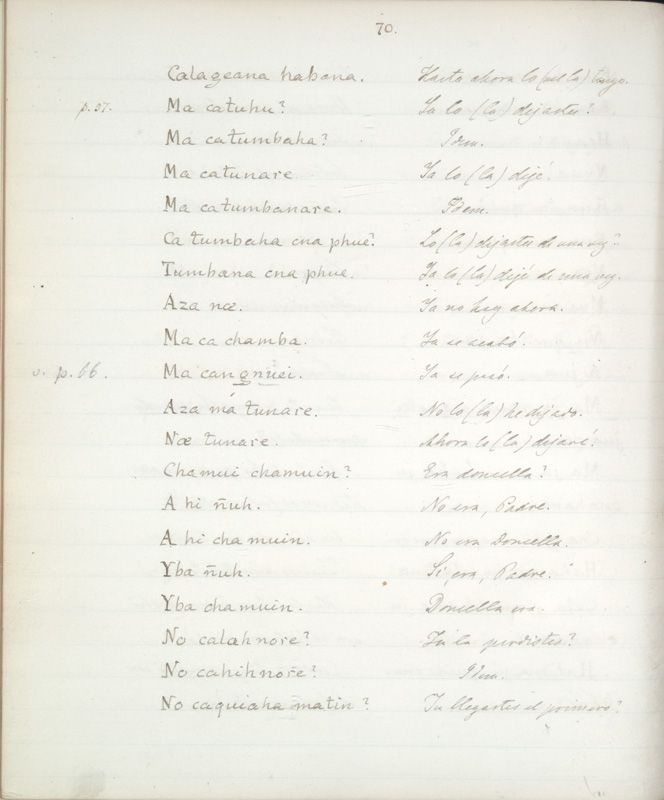 70.
Calageana habana. Hasta ahora lo (ó la) tengo.
p. 57. Ma catuhu? Ya lo (la) dijastes?
Ma catumbaha? Idem.
Ma catunare. Ya lo (la) dijé.
Ma catumbanare. Idem.
Ca tumbaha cna phue? Lo (la) dijastes de una vez?
Tumbana cna phue. Ya lo (la) dijé de una vez.
Aza næ. Ya no hay ahora.
Ma ca chamba. Ya se acabó.
v. p. 66. Ma cangnuei. Ya se pasó.
Aza má tunare. No lo (la) he dijado.
Næ tunare. Ahora lo (la) dijaré.
Chamui chamuin? Era doncella?
A hi ñuh. No era, Padre.
A hi chamuin. No era Doncella.
Yba ñuh. Si, era, Padre.
Yba chamuin. Doncella era.
No calahnore? Tu la perdistes?
No cahihnore? Idem.
No caquiaha matin? Tu llegastes el primero?